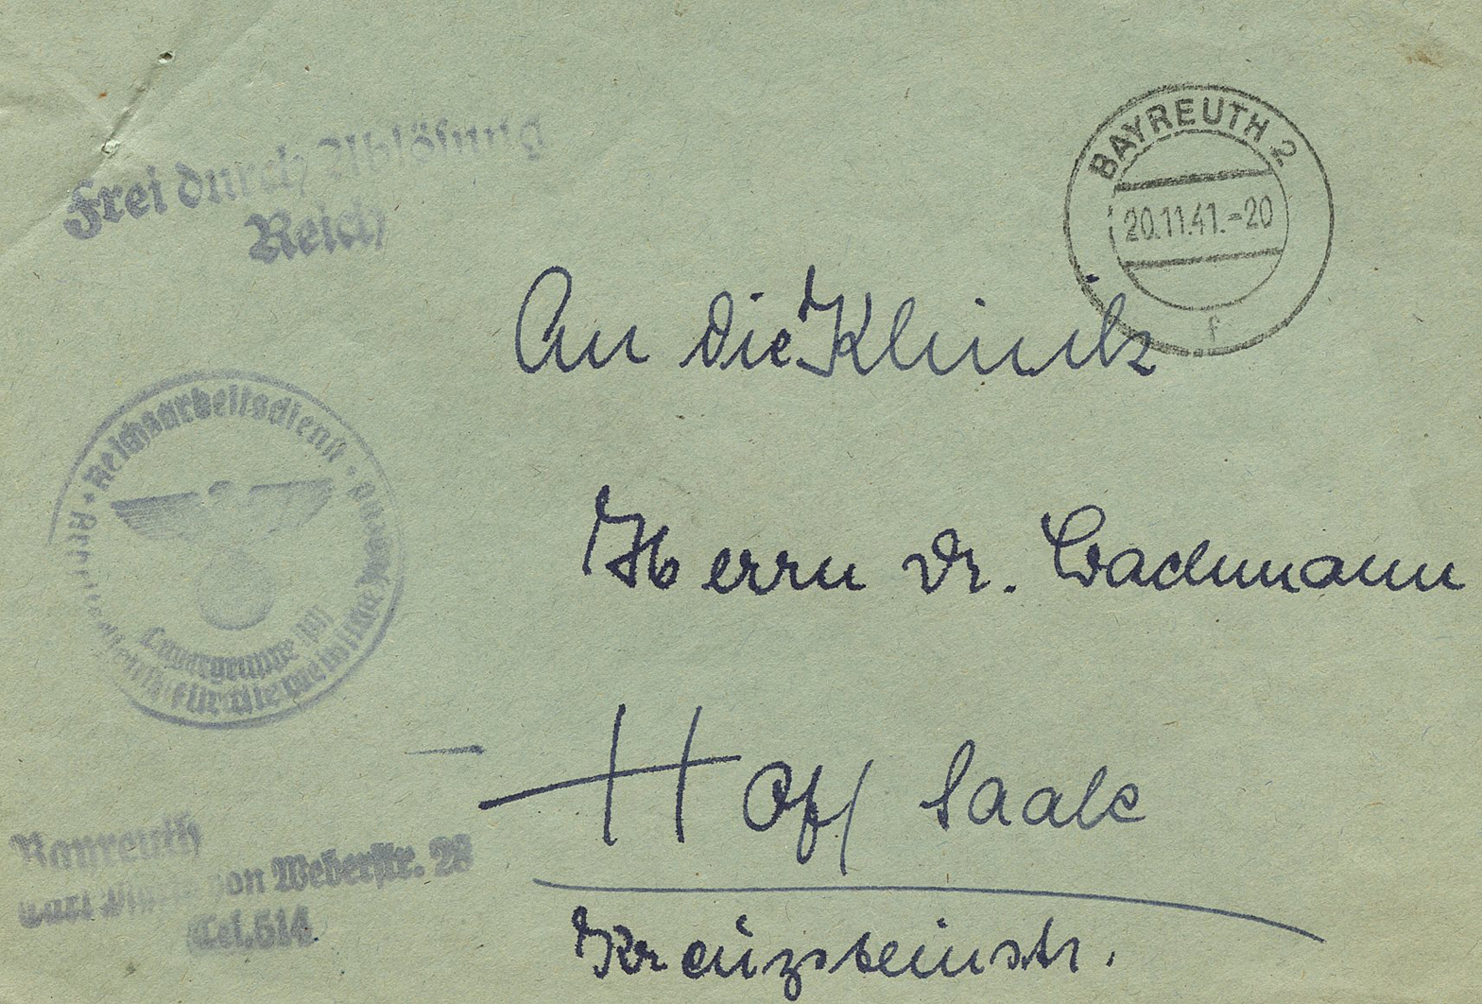 Frei durch Ablösung
Reich
BAYREUTH 2
20.11.41.-20
f
An die Klinik
Herrn Dr. Wachmann
Reichsarbeitsdienst
Lagergruppe
für die weibliche
Hof/ Saale
Kreuzsteinstr.
Bayreuth
Carl von Weberstr. 28
Tel. 614